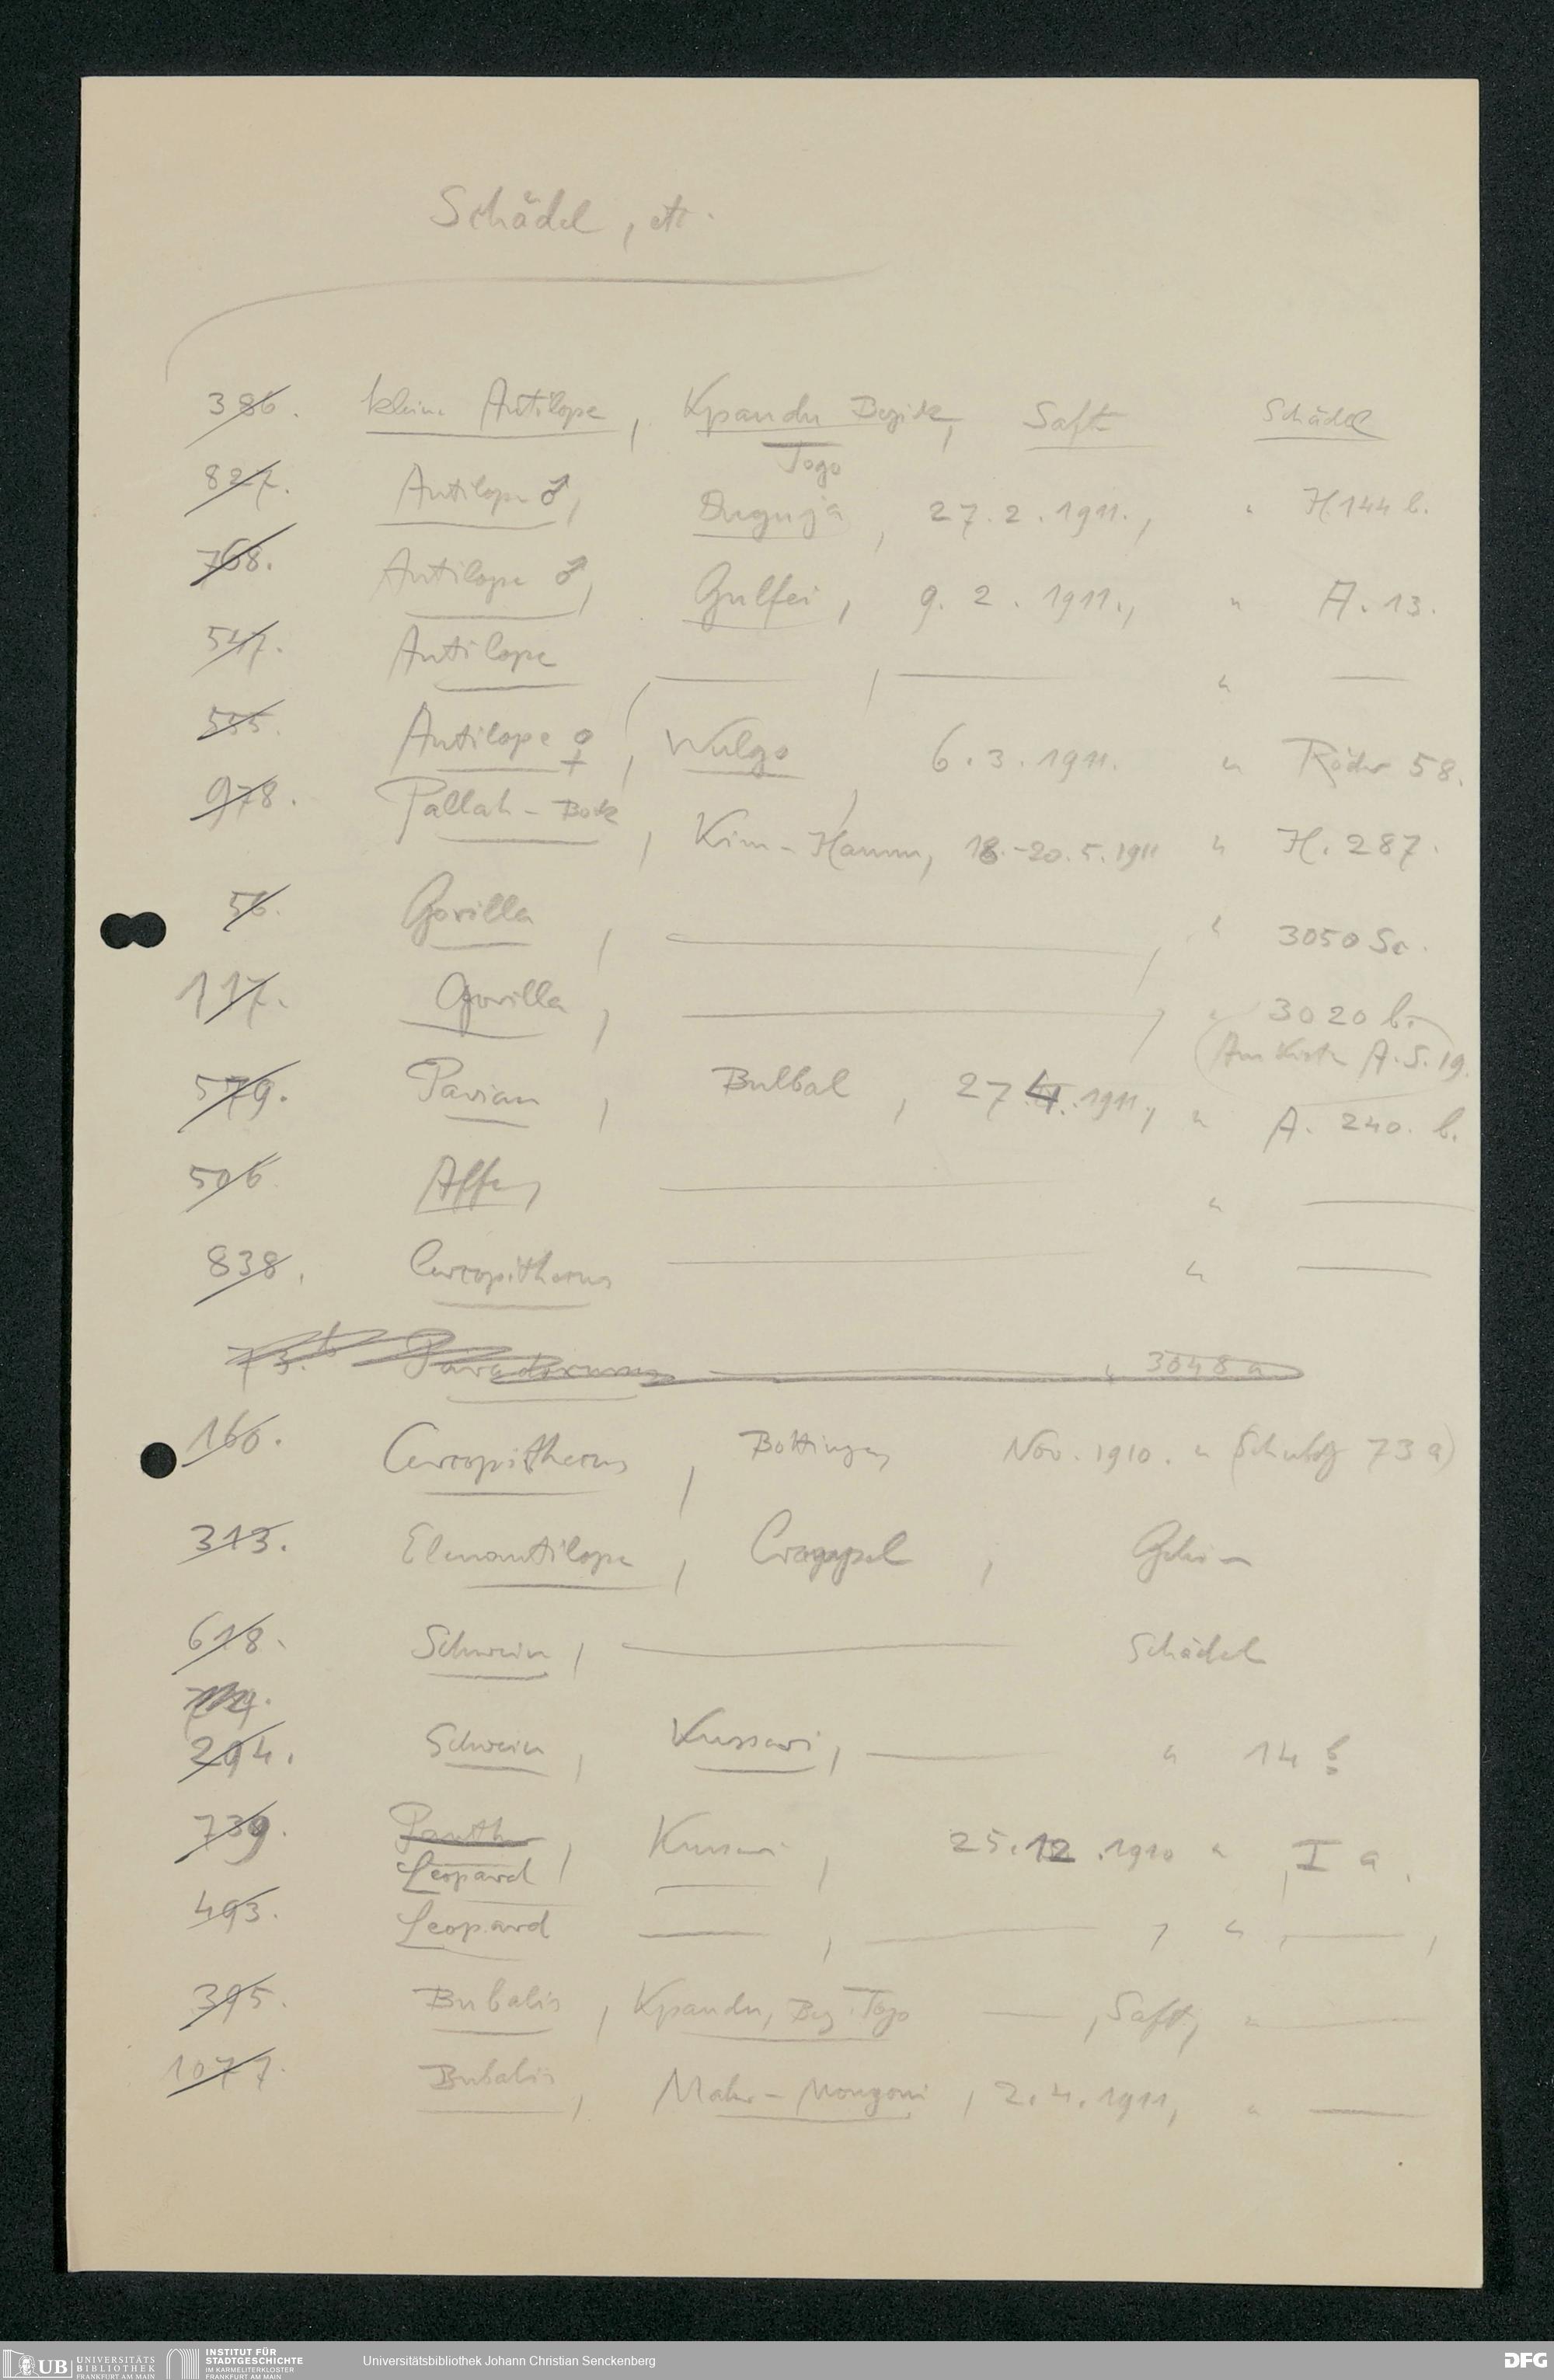 Schädel, etc.
386. kleine Antilope, Kpandu Bezirk, Saft Schädel
Togo
827. Antilope ♂, 27.2.1911., " H 144 b.
768. Antilope ♂, Gulfei, 9.2.1911., " A. 13.
547. Antilope, —, — " —
555. Antilope ♀, Wulgo 6.3.1911. " Röder 58.
978. Pallah-Bock, Kim-Hamm, 18.-20.5.1911 " H. 287.
56. Gorilla, —, " 3050 Sc.
117. Gorilla, —, " 3020 b.
(Am Kiste A.S.19.
579. Pavian, Bulbal, 27.4.1911, " A. 240. b.
506 Affe, — " —
838. Cercopithecus — " —
73. b — " 3048 a
166. Cercopithecus, Nov. 1910. " (Schultz 73 a)
313. Elenantilope, ,
618. Schwein, — Schädel
294. Schwein, Kussari, — " 14 b
739. Panther, Kusseri, 25.12.1910 " , I a.
Leopard
493. Leopard —, —, " , —,
395. Bubalis, Kpandu, Bez. Togo —, Saft, " —
1077. Bubalis, 2.4.1911, " —
UB UNIVERSITÄTS
BIBLIOTHEK
FRANKFURT AM MAIN
INSTITUT FÜR
STADTGESCHICHTE
IM KARMELITERKLOSTER
FRANKFURT AM MAIN
Universitätsbibliothek Johann Christian Senckenberg
DFG